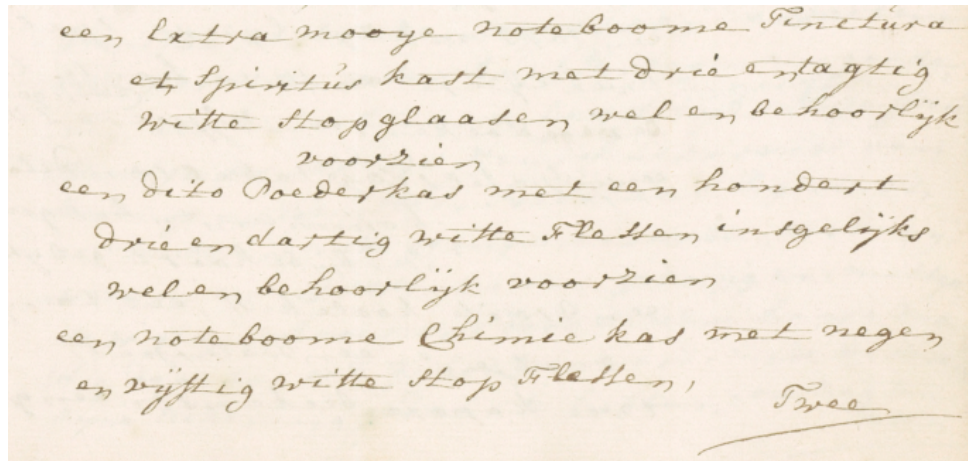 een Extra mooye noteboome Tinctúra
et Spiritús kast met drie en tagtig
witte stopglaasen wel en behoorlijk
voorzien
een dito Poederkas met een hondert
drie en dartig witte Flessen insgelijks
wel en behoorlijk voorzien
een noteboome Chimie kas met negen
en vijftig witte stop Flessen,
Twee